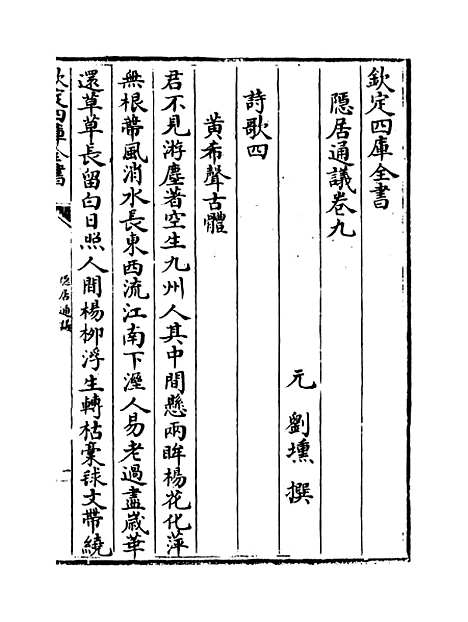 欽定四庫全書
隱居通議卷九
元 劉壎 撰
詩歌四
黄希聲古體
君不見游塵著空生九州人其中間懸兩眸楊花化萍
無根蔕風消水長東西流江南下溼人易老過盡嵗華
還草草長留白日照人間楊柳浮生轉枯槀毬文帶繞
欽定四庫全書
隠居通議
一